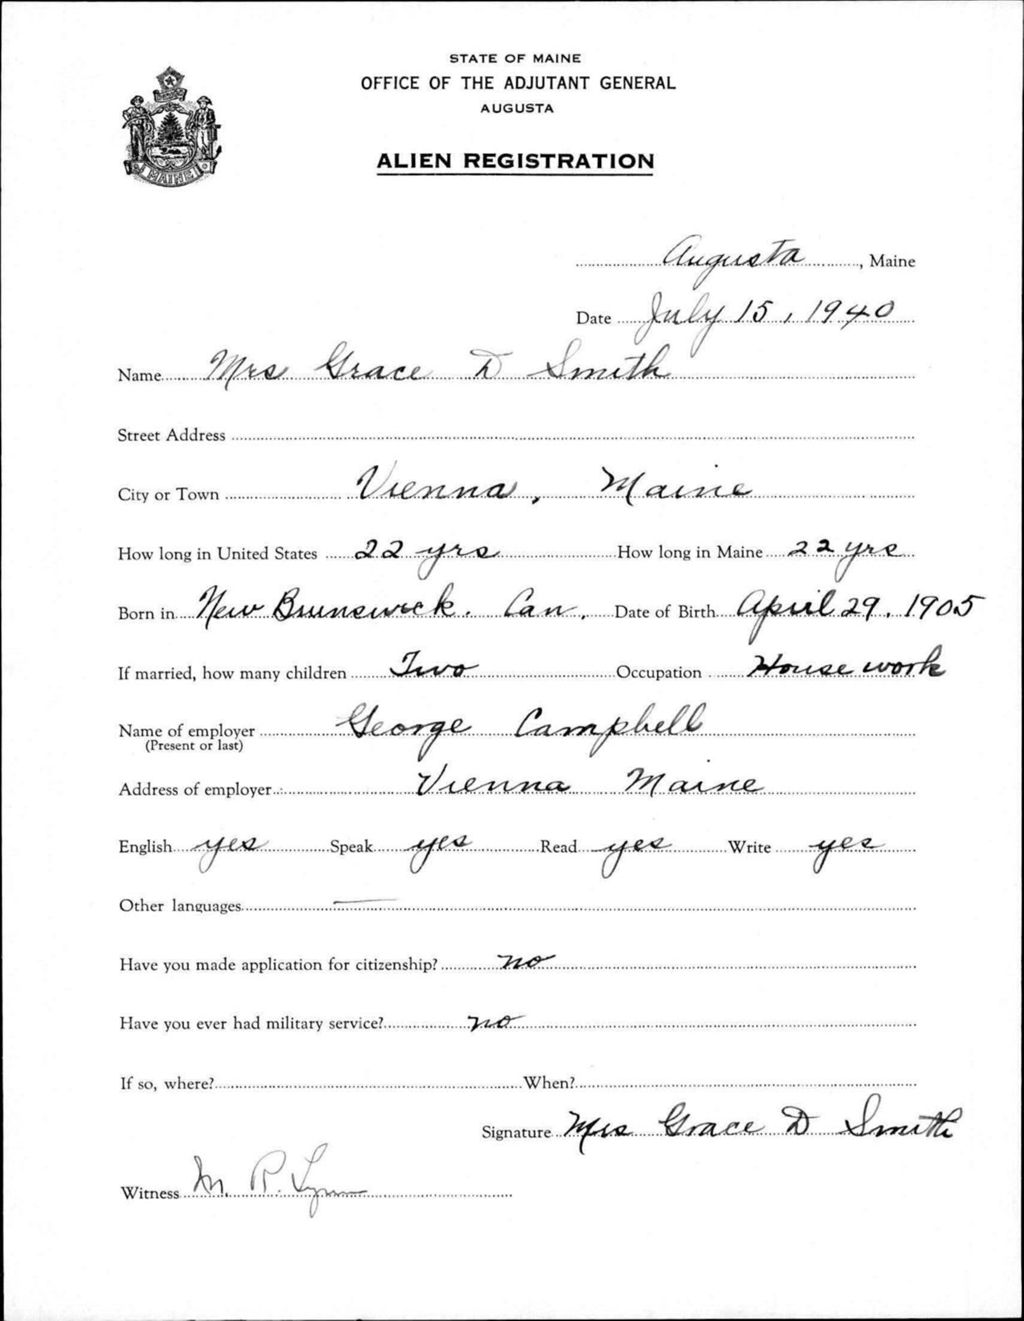 STATE OF MAINE
OFFICE OF THE ADJUTANT GENERAL
AUGUSTA
ALIEN REGISTRATION
MAINE
Augusta, Maine
Date July 15, 1940
Name Mrs Grace D Smith
Street Address
City or Town Vienna, Maine
How long in United States 22 yrs How long in Maine 22 yrs
Born in New Brunswick. Can. Date of Birth April 29, 1905
If married, how many children Two Occupation House work
Name of employer George Campbell
(Present or last)
Address of employer Vienna Maine
English yes Speak yes Read yes Write yes
Other languages —
Have you made application for citizenship? no
Have you ever had military service? no
If so, where? When?
Signature Mrs Grace D Smith
Witness M. R. Lynn